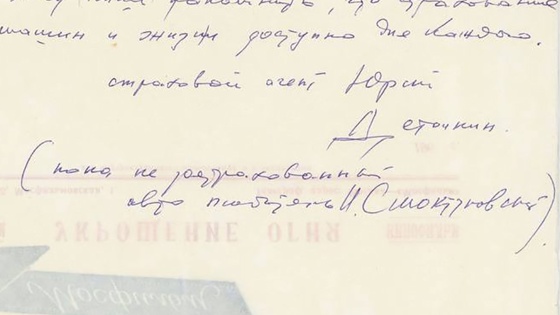 что страхование
машин и жизни доступно для каждого.
страховой агент Юрий
Деточкин.
(пока не застрахованный
авто любитель И. Смоктуновский).
УКРОЩЕНИЕ ОГНЯ
Мосфильм